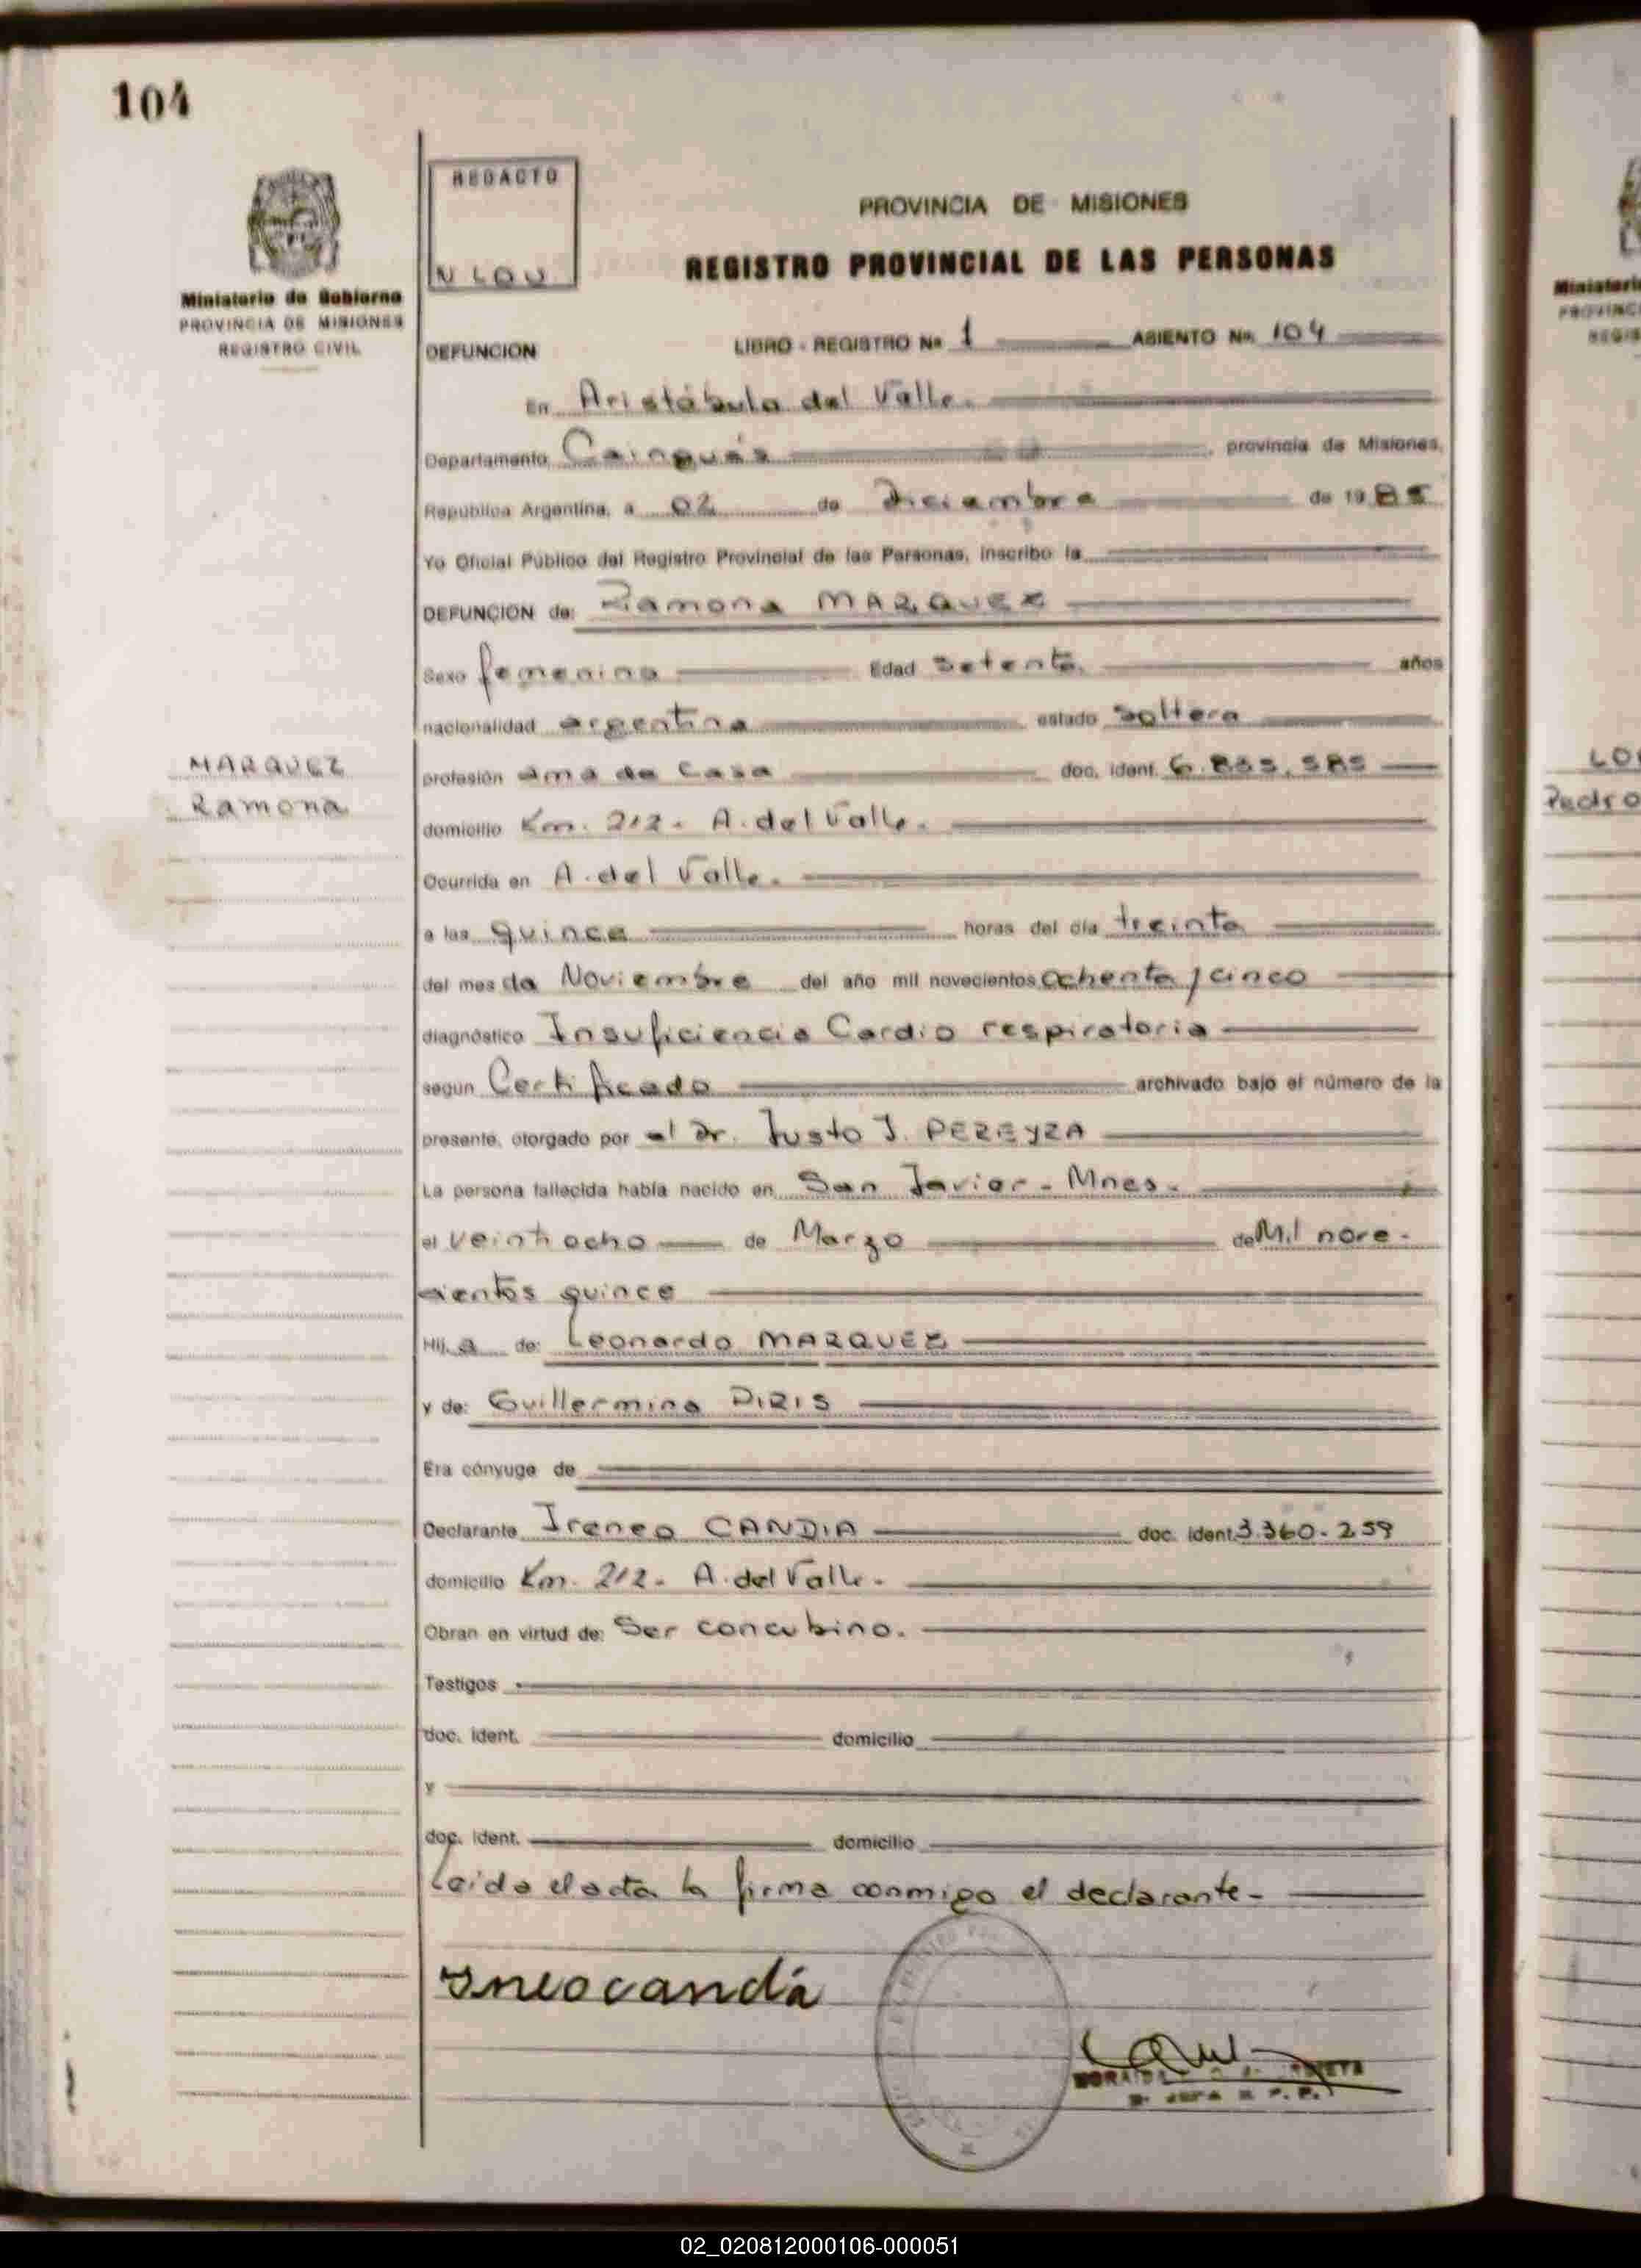 104
REDACTO
PROVINCIA DE MISIONES
REGISTRO PROVINCIAL DE LAS PERSONAS
Ministerio de Gobierno
PROVINCIA DE MISIONES
REGISTRO CIVIL
DEFUNCION LIBRO - REGISTRO Nº 1 ASIENTO Nº 104
En Aristóbulo del Valle.
Departamento Cainguás, provincia de Misiones,
República Argentina, a 02 de Diciembre de 1985
Yo Oficial Público del Registro Provincial de las Personas, inscribo la
DEFUNCION de: Ramona MARQUEZ
Sexo femenino Edad Setenta años
nacionalidad argentina estado Soltera
MARQUEZ
Ramona
profesión ama de Casa doc. ident.
domicilio Km. 212 - A. del Valle.
Ocurrida en A. del Valle.
a las quince horas del día treinta
del mes de Noviembre del año mil novecientos ochenta y cinco
diagnóstico Insuficiencia Cardio respiratoria
según Certificado archivado bajo el número de la
presente, otorgado por el Dr. Justo J. PEREYRA
La persona fallecida había nacido en San Javier - Mnes.
el veintiocho de Marzo de Mil nove-
cientos quince
Hij a de: Leonardo MARQUEZ
y de: Guillermina PIRIS
Era cónyuge de
Declarante Ireneo CANDIA doc. ident. 3.360.259
domicilio Km. 212 - A. del Valle.
Obran en virtud de: Ser concubino.
Testigos
doc. ident. domicilio
y
doc. ident. domicilio
Leida el acta la firma conmigo el declarante -
02_020812000106-000051